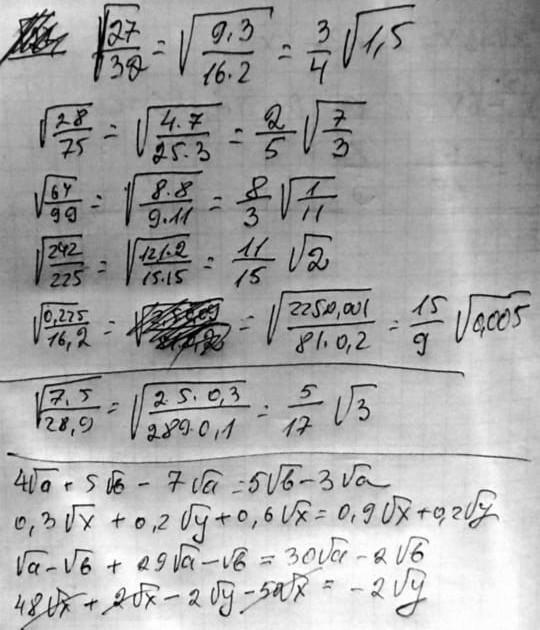 √(27/32) = √(9.3/16.2) = 3/4 √1,5
√(28/75) = √(4.7/25.3) = 2/5 √(7/3)
√(64/99) = √(8.8/9.11) = 8/3 √(1/11)
√(242/225) = √(121.2/15.15) = 11/15 √2
√(0,225/16,2) = = √(225.0,001/81.0,2) = 15/9 √0,005
√(7,5/28,9) = √(25.0,3/289.0,1) = 5/17 √3
4√a + 5√b - 7√a = 5√b - 3√a
0,3√x + 0,2√y + 0,6√x = 0,9√x + 0,2√y
√a - √b + 29√a - √b = 30√a - 2√b
48√x + 2√x - 2√y - 50√x = -2√y